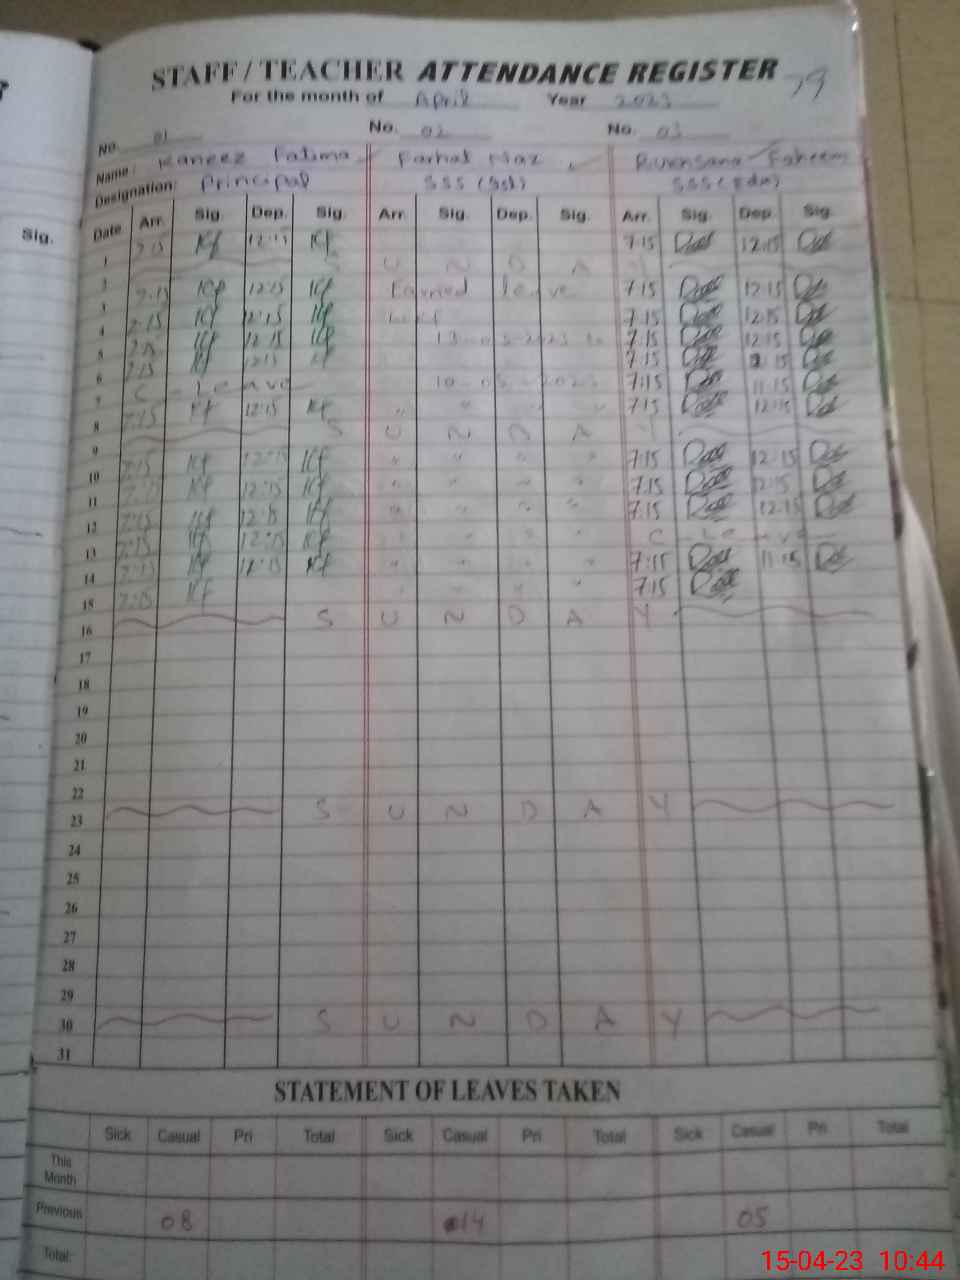 STAFF / TEACHER ATTENDANCE REGISTER 79
For the month of April Year 2023
No. 01 No. 02 No. 03
Name: Kaneez Fatima Farhat Naz Rukhsana Faheem
Designation: Principal SSS
Sig.
Date Arr. Sig. Dep. Sig. Arr. Sig. Dep. Sig. Arr. Sig. Dep. Sig.
1 7:15 Kf 12:15 Kf 7:15 12:15
2 S U N D A Y
3 7:15 Kf 12:15 Kf Earned leave 7:15 12:15
4 7:15 Kf 12:15 Kf 7:15 12:15
5 7:15 Kf 12:15 Kf 7:15 12:15
6 7:15 Kf 12:15 Kf 7:15 12:15
7 C - Leave 7:15 11:15
8 7:15 Kf 12:15 Kf " " " " 7:15 12:15
9 S U N D A Y
10 7:15 Kf 12:15 Kf " " " " 7:15 12:15
11 7:15 Kf 12:15 Kf " " " " 7:15 12:15
12 7:15 Kf 12:15 Kf " " " " 7:15 12:15
13 7:15 Kf 12:15 Kf " " " " C - Leave
14 7:15 Kf 12:15 Kf " " " " 7:15 11:15
15 7:15 Kf " " " " 7:15
16 S U N D A Y
17
18
19
20
21
22
23 S U N D A Y
24
25
26
27
28
29
30 S U N D A Y
31
STATEMENT OF LEAVES TAKEN
Sick Casual Pri Total Sick Casual Pri Total Sick Casual Pri Total
This Month
Previous 08 14 05
Total:
15-04-23 10:44